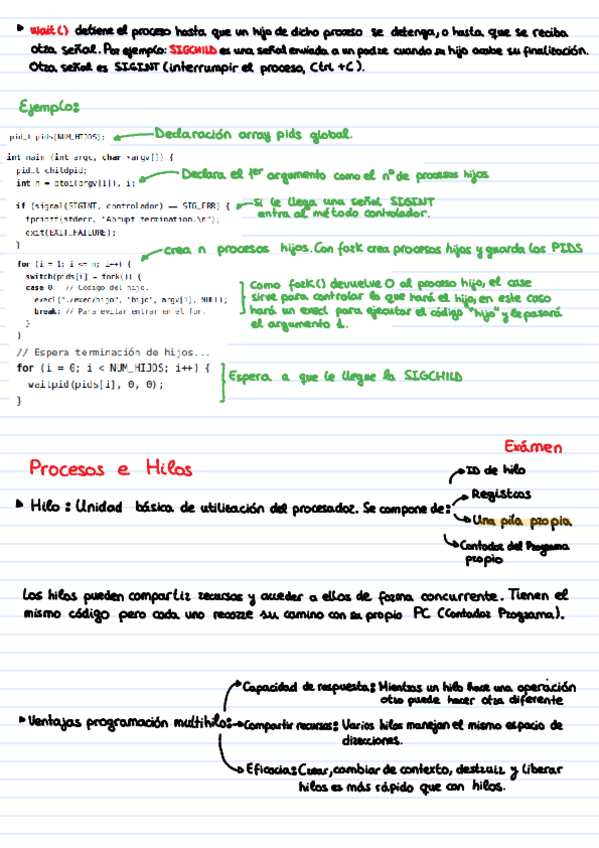 ▸ Wait() detiene el proceso hasta que un hijo de dicho proceso se detenga, o hasta que se reciba
otra señal. Por ejemplo: SIGCHILD es una señal enviada a un padre cuando su hijo acabe su finalización.
Otra señal es SIGINT (interrumpir el proceso, Ctrl + C).
Ejemplo:
pid_t pids[NUM_HIJOS]; Declaración array pids global.
int main (int argc, char *argv[]) {
pid_t childpid;
int n = atoi(argv[1]), i; Declara el 1er argumento como el nº de procesos hijos
if (signal(SIGINT, controlador) == SIG_ERR) { Si le llega una señal SIGINT
fprintf(stderr, "Abrupt termination.\n"); entra al método controlador.
exit(EXIT_FAILURE);
}
crea n procesos hijos. Con fork crea procesos hijos y guarda los PIDS
for (i = 1; i <= n; i++) {
switch(pids[i] = fork()) {
case 0: // Código del hijo.
execl("./exec/hijo", "hijo", argv[1], NULL);
break; // Para evitar entrar en el for.
}
}
Como fork() devuelve 0 al proceso hijo, el case
sirve para controlar lo que hará el hijo, en este caso
hará un execl para ejecutar el código "hijo" y le pasará
el argumento 1.
// Espera terminación de hijos...
for (i = 0; i < NUM_HIJOS; i++) {
waitpid(pids[i], 0, 0);
}
Espera a que le llegue la SIGCHILD
Exámen
Procesos e Hilos
▸ Hilo: Unidad básica de utilización del procesador. Se compone de:
ID de hilo
Registros
Una pila propia
Contador del Programa
propio
Los hilos pueden compartir recursos y acceder a ellos de forma concurrente. Tienen el
mismo código pero cada uno recorre su camino con su propio PC (Contador Programa).
▸ Ventajas programación multihilo:
Capacidad de respuesta: Mientras un hilo hace una operación
otro puede hacer otra diferente
Compartir recursos: Varios hilos manejan el mismo espacio de
direcciones.
Eficacia: Crear, cambiar de contexto, destruir y liberar
hilos es más rápido que con hilos.